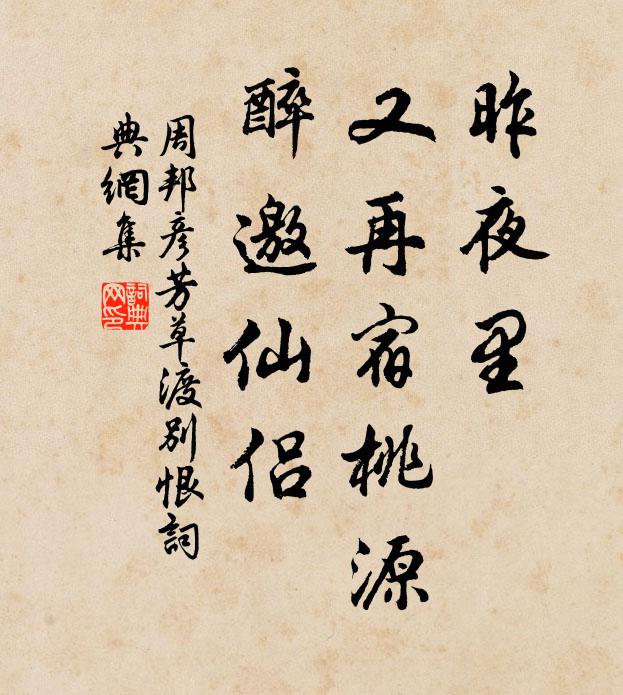 昨夜里
又再宿桃源
醉邀仙侣
周邦彦芳草渡别恨詞
典網集
詞典网印